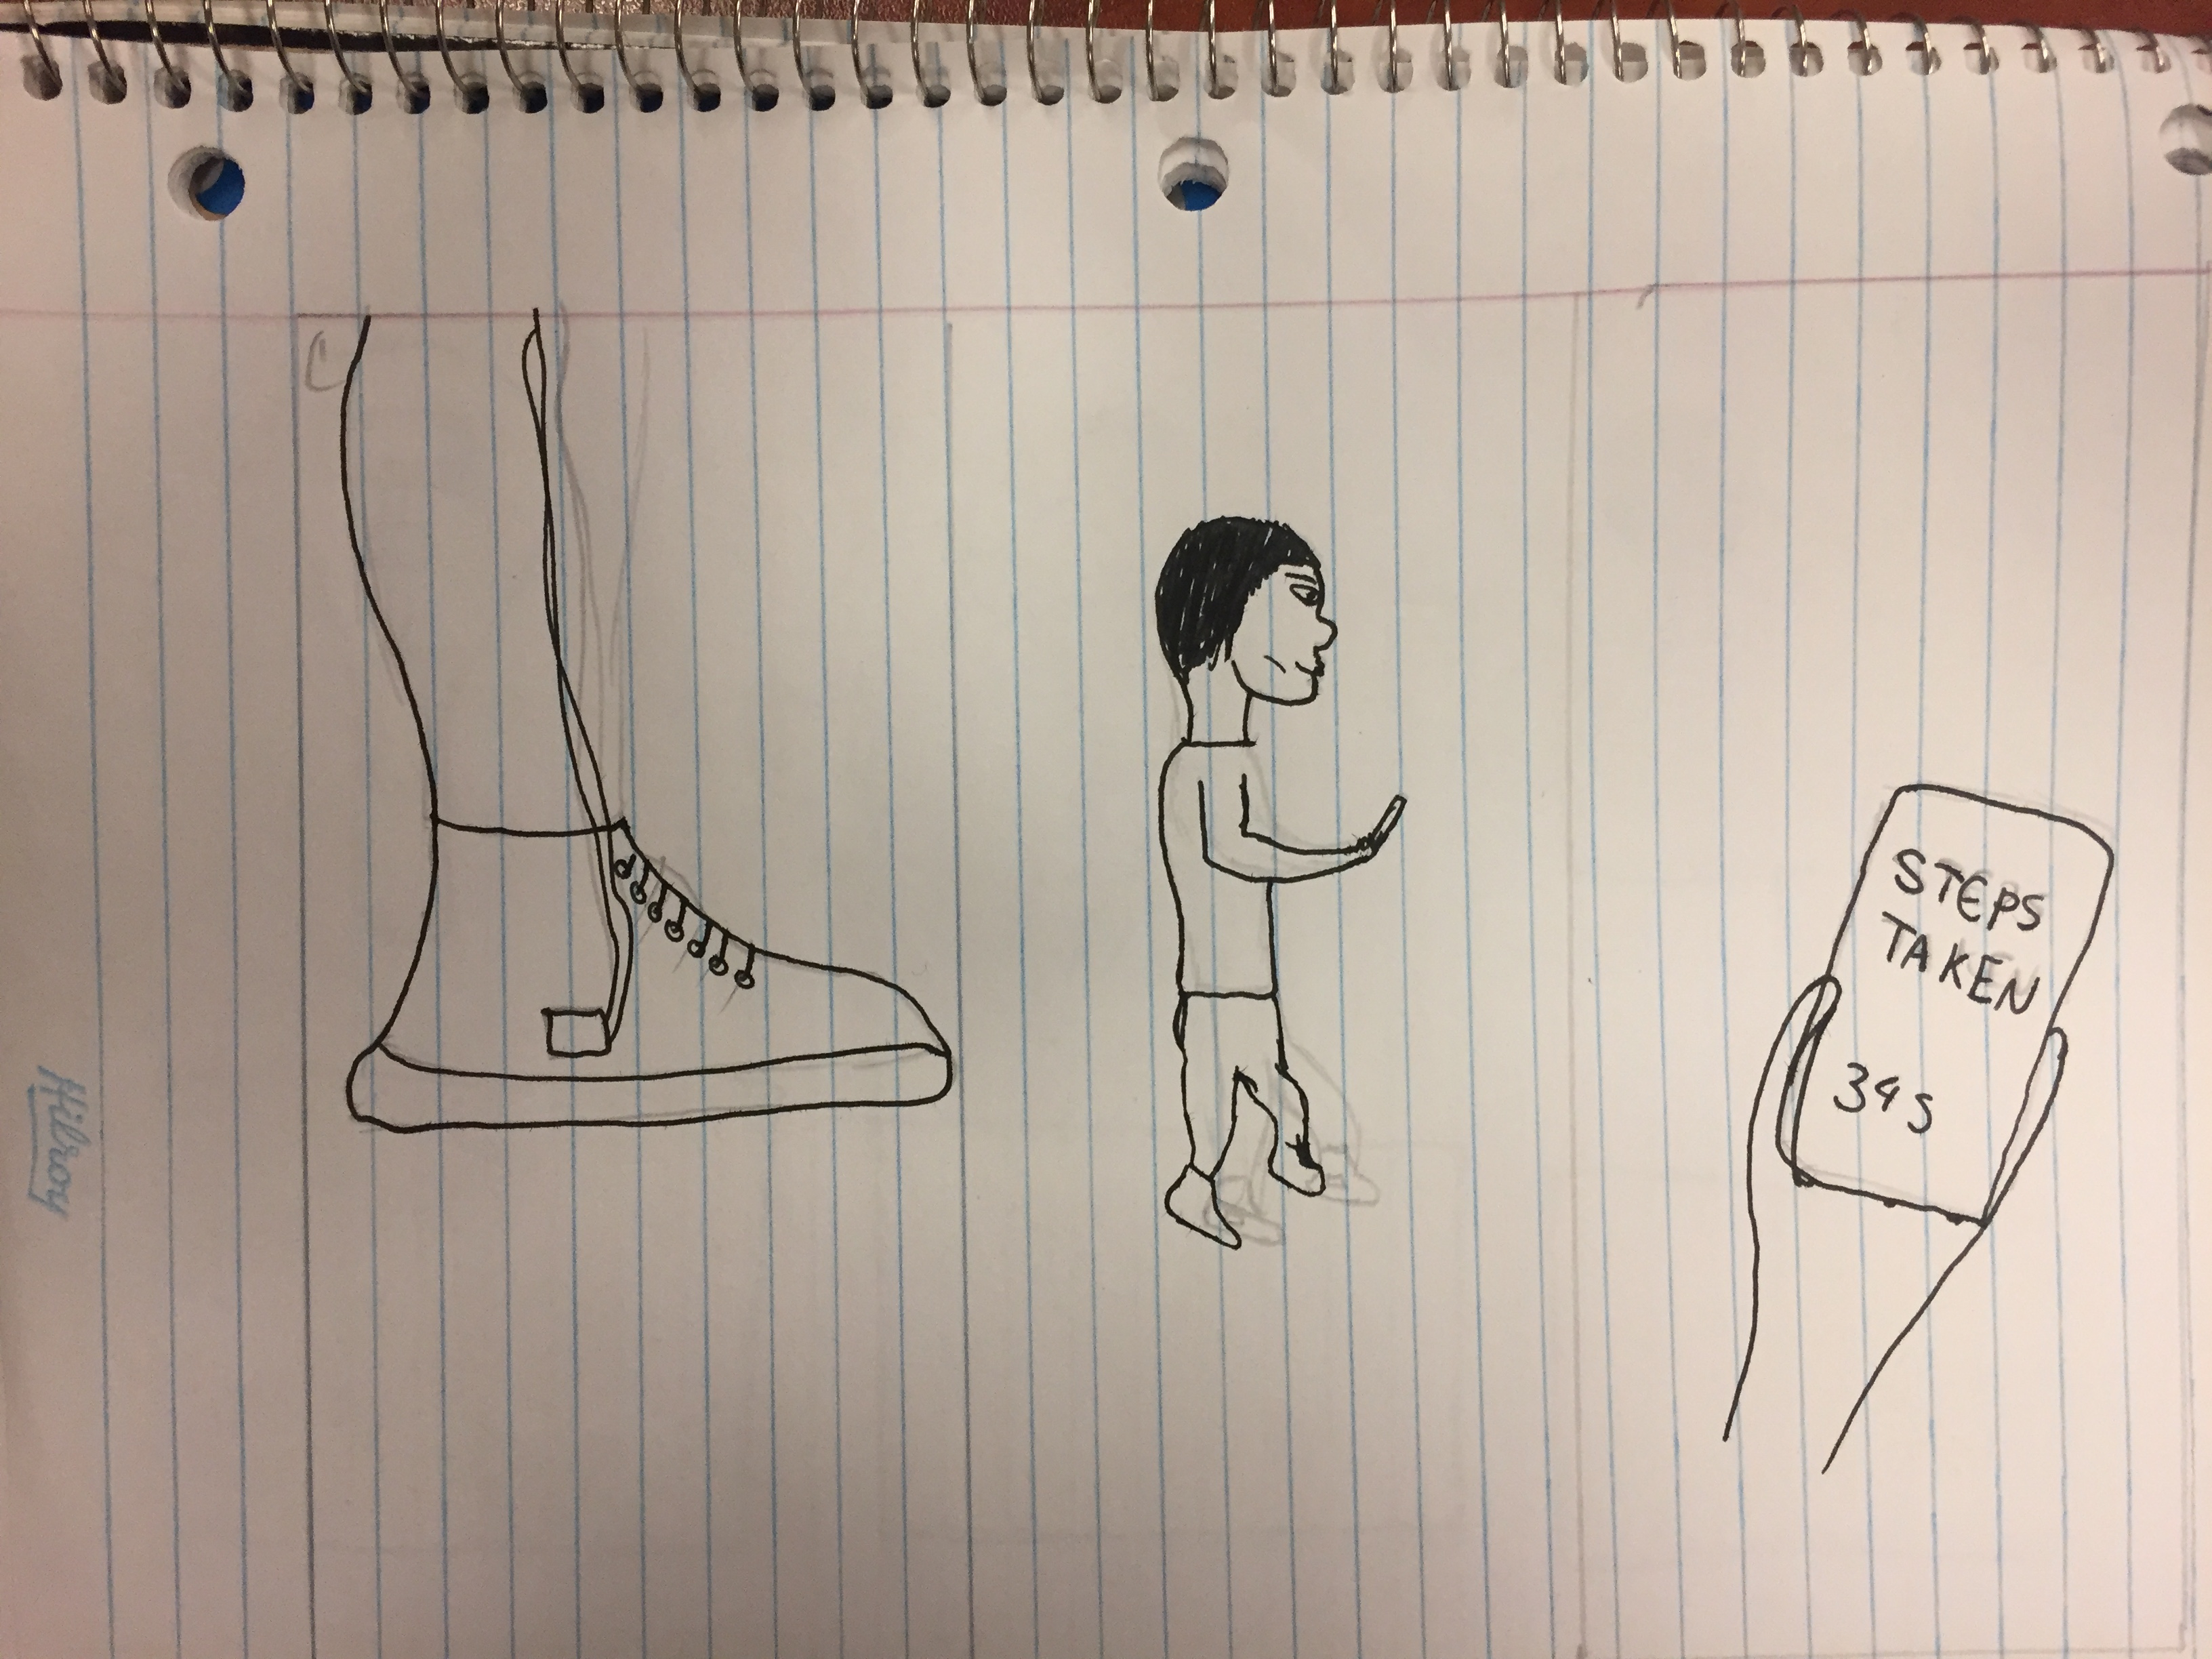 Hilroy
STEPS
TAKEN
345